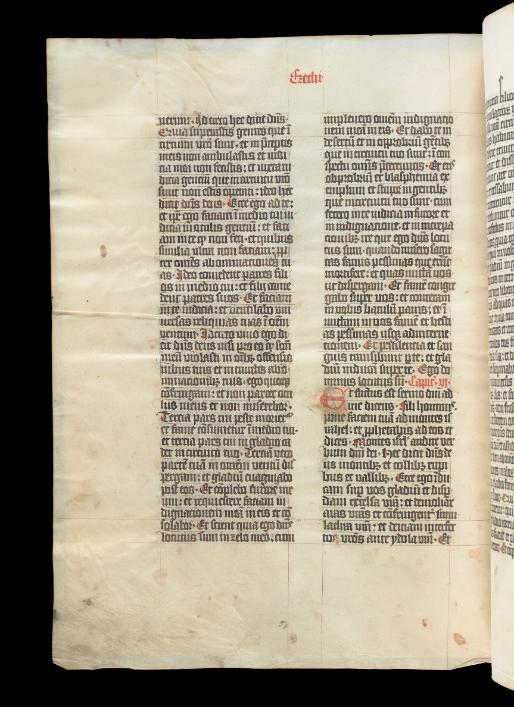 Ezechi
uerunt. Idcirco hec dicit dns.
Quia supastis gentes que ī
circuitu vrō sunt. et in pceptis
meis non ambulastis et iudi
cia mea non fecistis: et iuxta iu
dicia gentiū que in circuitu vrō
sunt non estis operati: ideo hec
dicit dns deus. Ecce ego ad te:
et ipe ego faciam ī medio tui iu
dicia in oculis gentiū: et faci
am in te q non feci. et quibus
similia ultra non faciam:
ter omēs abominationes tu
as. Ideo comedent patres fili
os in medio tui: et filij come
dent patres suos. Et faciam
in te iudicia: et ventilabo uni
uersas reliquias tuas ī omem
ventum. Idcirco viuo ego di
cit dns deus nisi pro eo q scm
meū violasti in oībz offensio
nibus tuis et in cunctis abo
minacionibz tuis. ego quoqz
cōfringam: et non parcet ocu
lus meus et non miserebor.
Tercia pars tui peste morietʳ
et fame cōsumetur ī medio tui:
et tercia pars tui in gladio ca
det in circuitu tuo. Terciā vero
partē tuā in omēm ventū dis
pergam: et gladiū euaginabo
post eos. Et cōplebo furorē me
um: et requiescere faciam in
dignacionem meā in eis et cō
solabor. Et scient quia ego dns
locutus sum in zelo meo. cum
impleuero omēm indignatio
nem meā in eis. Et dabo te in
desertū et in opprobriū gētibz
que in circuitu tuo sunt: ī con
spectu omīs ptereuntis. Et eris
obprobriū et blasphemia ex
emplum et stupor in gentibz
que in circuitu tuo sunt. cum
fecero in te iudicia in furore et
in indignatione. et in increpa
cionibz ire. ego dns locu
tus sum. quando misero sagit
tas famis pessimas que erūt
mortifere: et quas mittā vt
disperdam. Et famē congre
gabo super vos: et conteram
in vobis baculū panis: et ī
mittam in vos famē et besti
as pessimas usqz ad interne
cionem. Et pestilentia et san
guis transibunt p te: et gla
diū inducam supr te. Ego do
minus locutus sū. Capm. vi.
Et factus est sermo dni ad
me dicens. Fili hominis
pone faciem tuā ad montes is
rahel: et prophetabis ad eos et
dices. Montes isrl audite ver
bum dni dei. Hec dicit dns de
us montibz et collibz rupi
bus et vallibz. Ecce ego idu
cam sup vos gladiū et disp
dam excelsa vrā: et demoliar
aras vras et cōfringentʳ simu
lachra vrā: et deiciam interfec
tos vros ante ydola vrā. Et